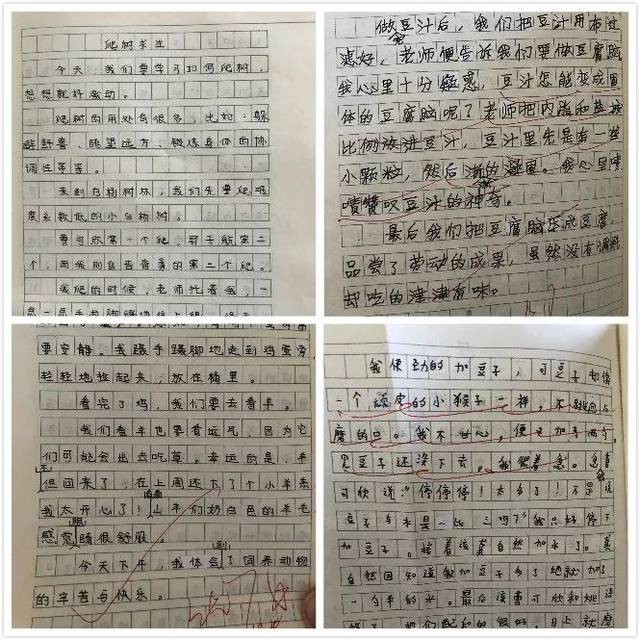 爬树求生
今天,我们要学习如何爬树,
想想就好激动。
爬树的用处有很多,比如:躲
避野兽、眺望远方、锻炼身体的协
调性等等。
来到白杨树林,我们先要爬难
度系数低的小白杨树。
费可欣第一个爬,
个,而我则自告奋勇的第三个爬。
我爬的时候,老师托着我,一
做豆汁后,我们把豆汁用布过
滤好,老师便告诉我们要做豆腐脑
我心里十分疑惑,豆汁怎能变成固
体的豆腐脑呢?老师把内脂和盐按
比例放进豆汁,豆汁里先是有一些
小颗粒,然后渐渐凝固。我心里啧
啧赞叹豆汁的神奇。
最后我们把豆腐脑压成豆腐,
品尝了劳动的成果,虽然没有
却吃的津津有味。
要安静。我蹑手蹑脚地走到鸡蛋旁
轻轻地捡起来,放在桶里。
看完了鸡,我们要去看羊。
我们看羊也要看运气,因为它
们可能会出去吃草。幸运的是,羊
但回来了,在上周还下了个小羊羔
我太开心了!山羊们奶白色的羊毛
感觉睛很舒服。
今天下午,我体会了饲养动物
的辛苦与快乐。
我使劲的加豆子,可豆子却像
一个顽皮的小猴子一样,不跳向石
磨的口。我不甘心,便又加了两勺,
见豆子还没下去,我很着急。费
可欣说:“停停停!太多了!不是说
豆子与水是一比三吗?”我只好停下
加豆子。接着该龚自然加水了。龚
自然因知道我加豆子多了她就加了
一勺半的水。最后该费可欣和姚